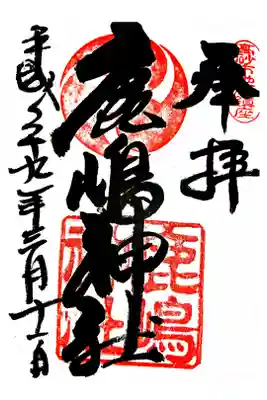 奉拝
鹿嶋神社
平成二十九年三月十一日
鹿嶋神社